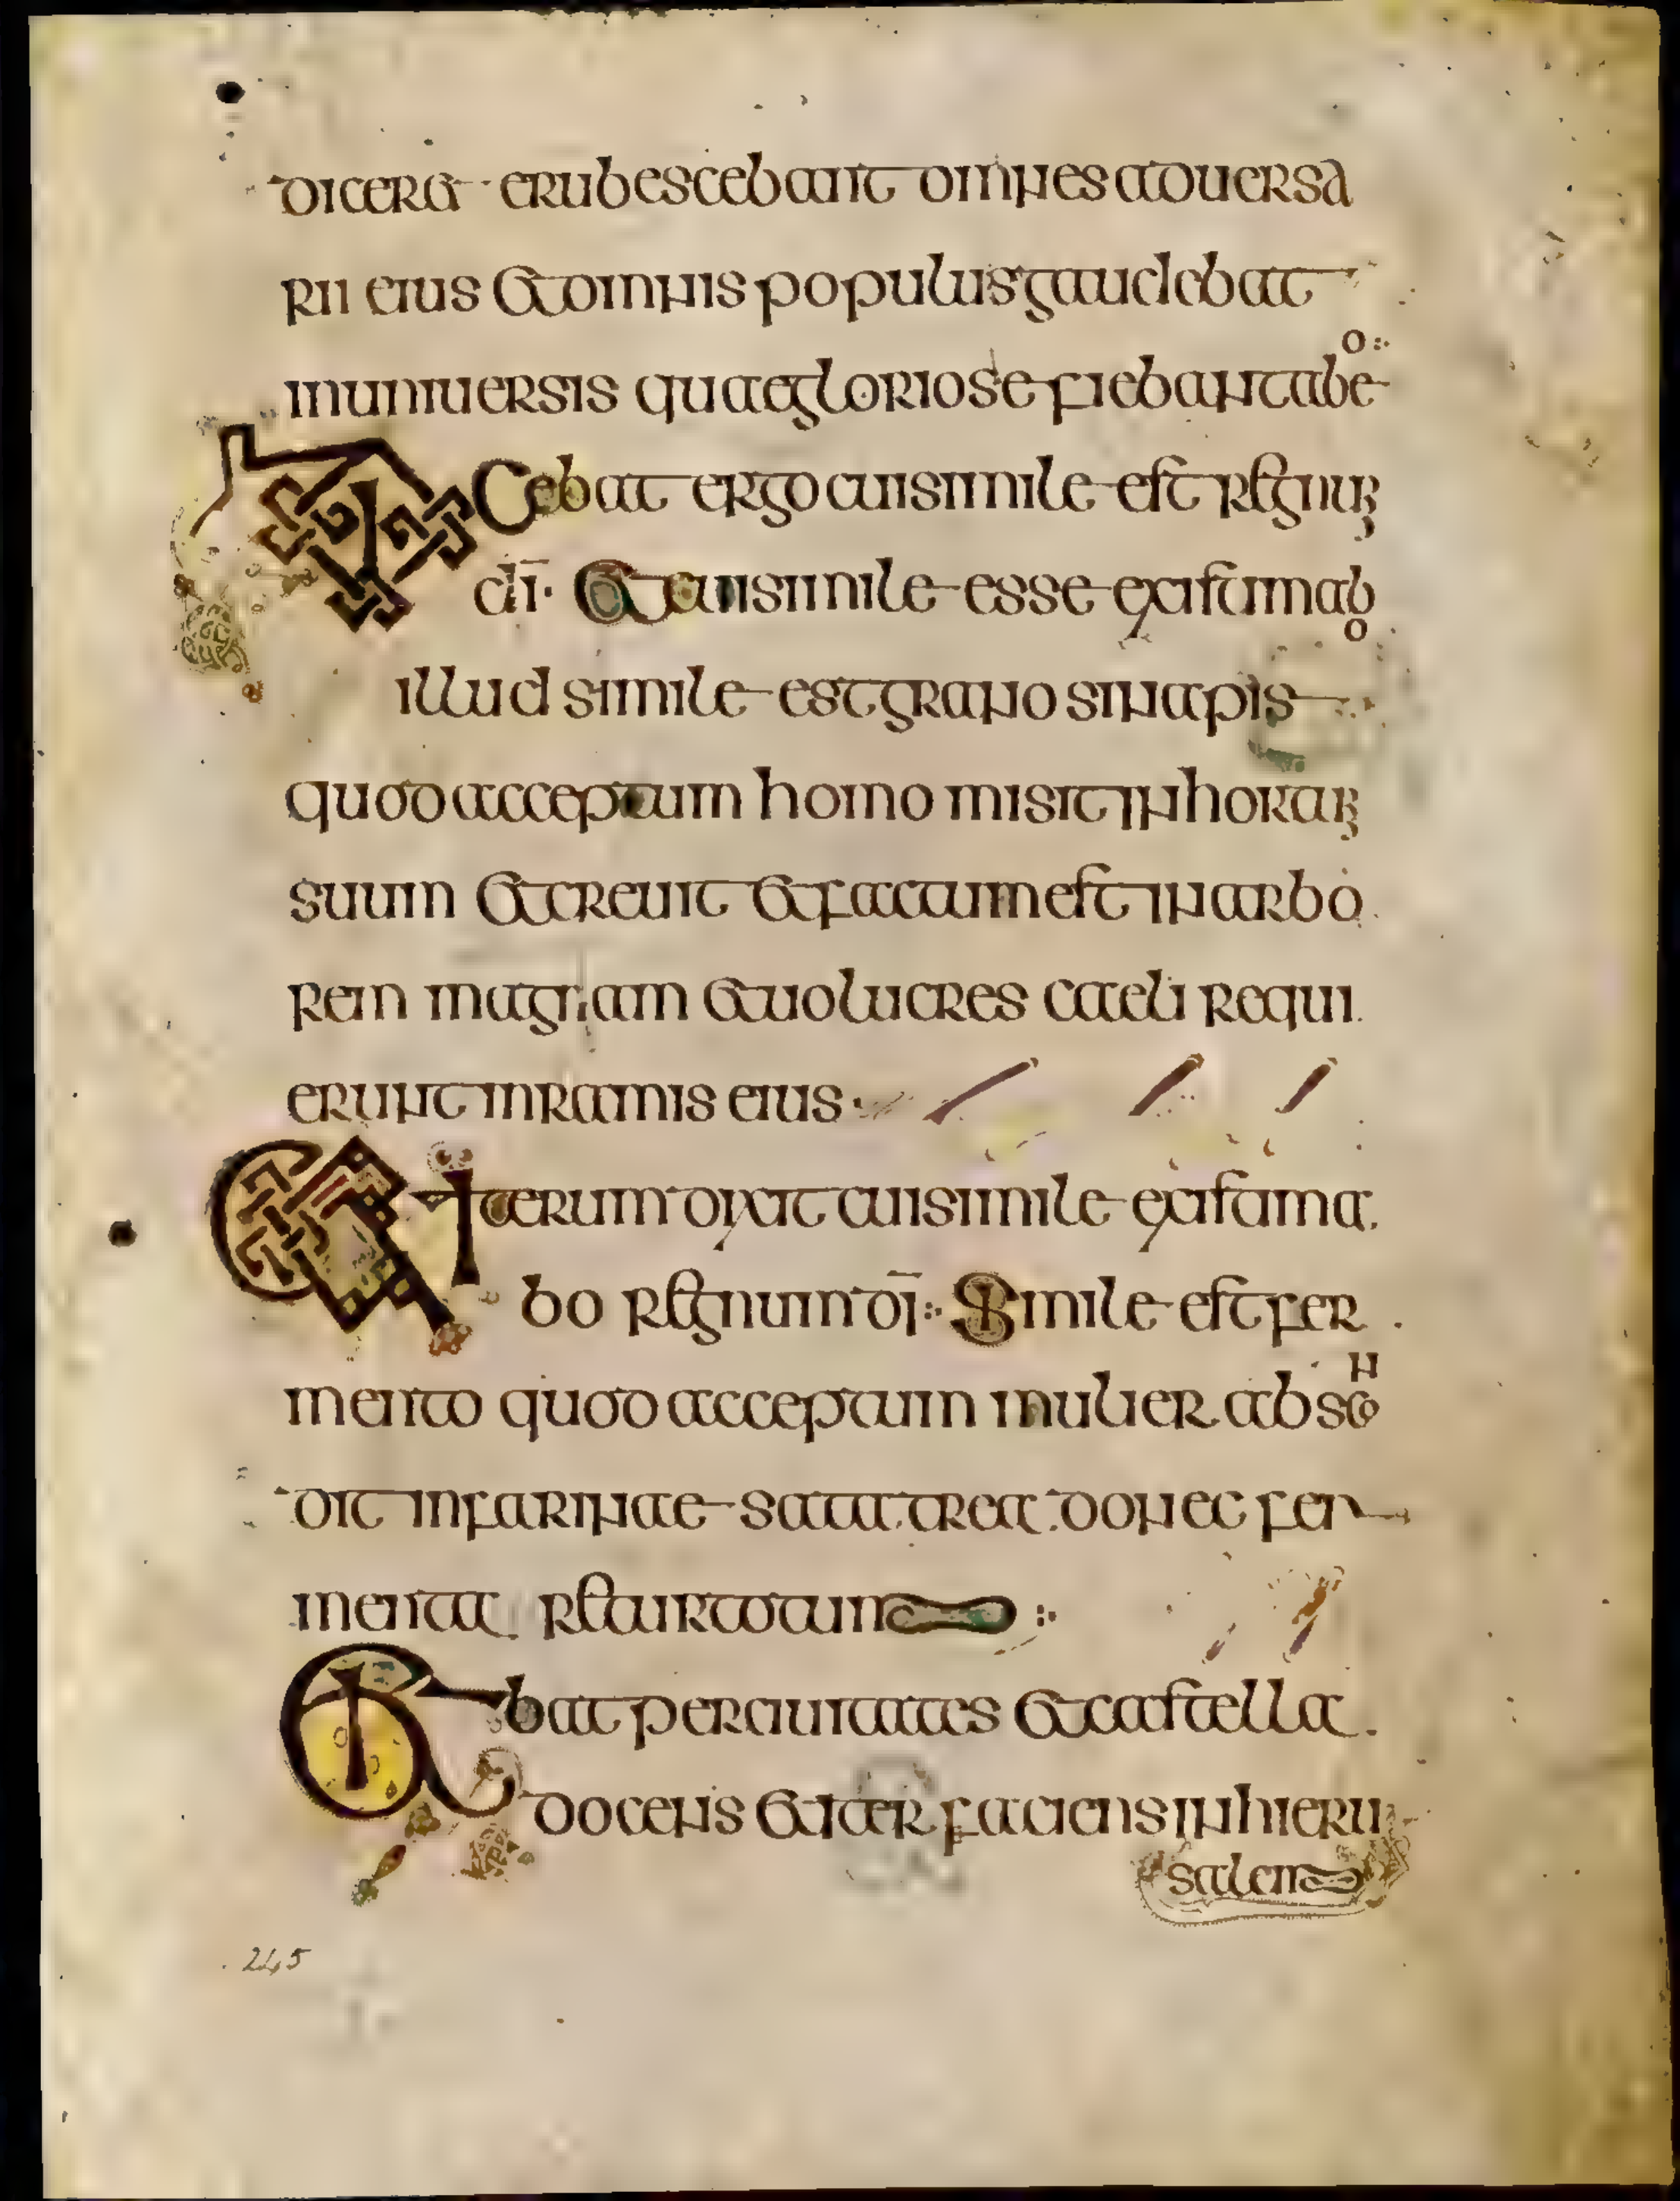 diceret erubescebant omnes aduersa
rii eius et omnis populus gaudebat
in uniuersis quae gloriose fiebant ab eo
Dicebat ergo cui simile est regnum
di. Et cui simile esse existimabo
illud simile est grano sinapis
quod acceptum homo misit in hortum
suum et creuit et factum est in arbo
rem magnam et uolucres caeli requi
erunt in ramis eius
Et iterum dixit cui simile existima
bo regnum dī Simile est fer
mento quod acceptum mulier abscon
dit in farinae sata trea donec fer
menta retur totum
Et ibat per ciuitates et castella
docens et iter faciens in hieru
salem
245